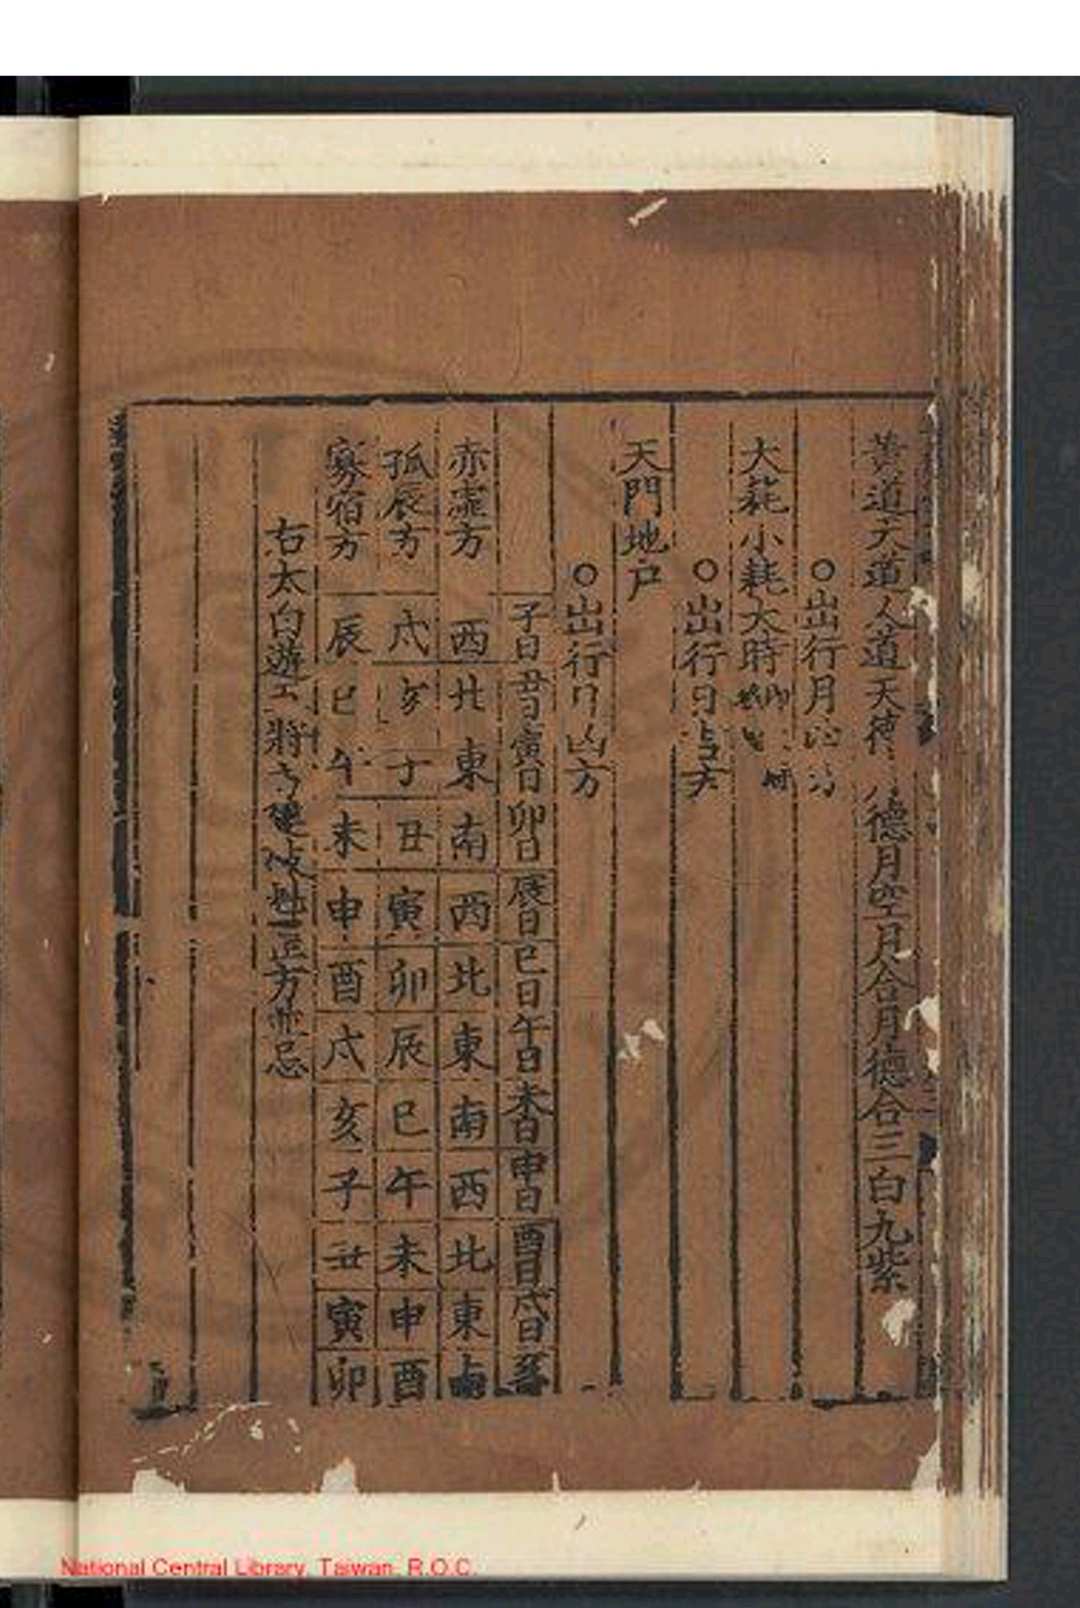 黃道天道人道天德 德月空月合月德合三白九紫
○出行月凶方
大耗小耗大時
○出行日吉方
天門地户
○出行日凶方
子日丑日寅日卯日辰日巳日午日未日申日酉日戌日亥
赤霊方 西北東南西北東南西北東南
孤辰方 戌亥子丑寅卯辰巳午未申酉
寡宿方 辰巳午未申酉戌亥子丑寅卯
右太白遊 將 方並忌
National Central Library, Taiwan, R.O.C.